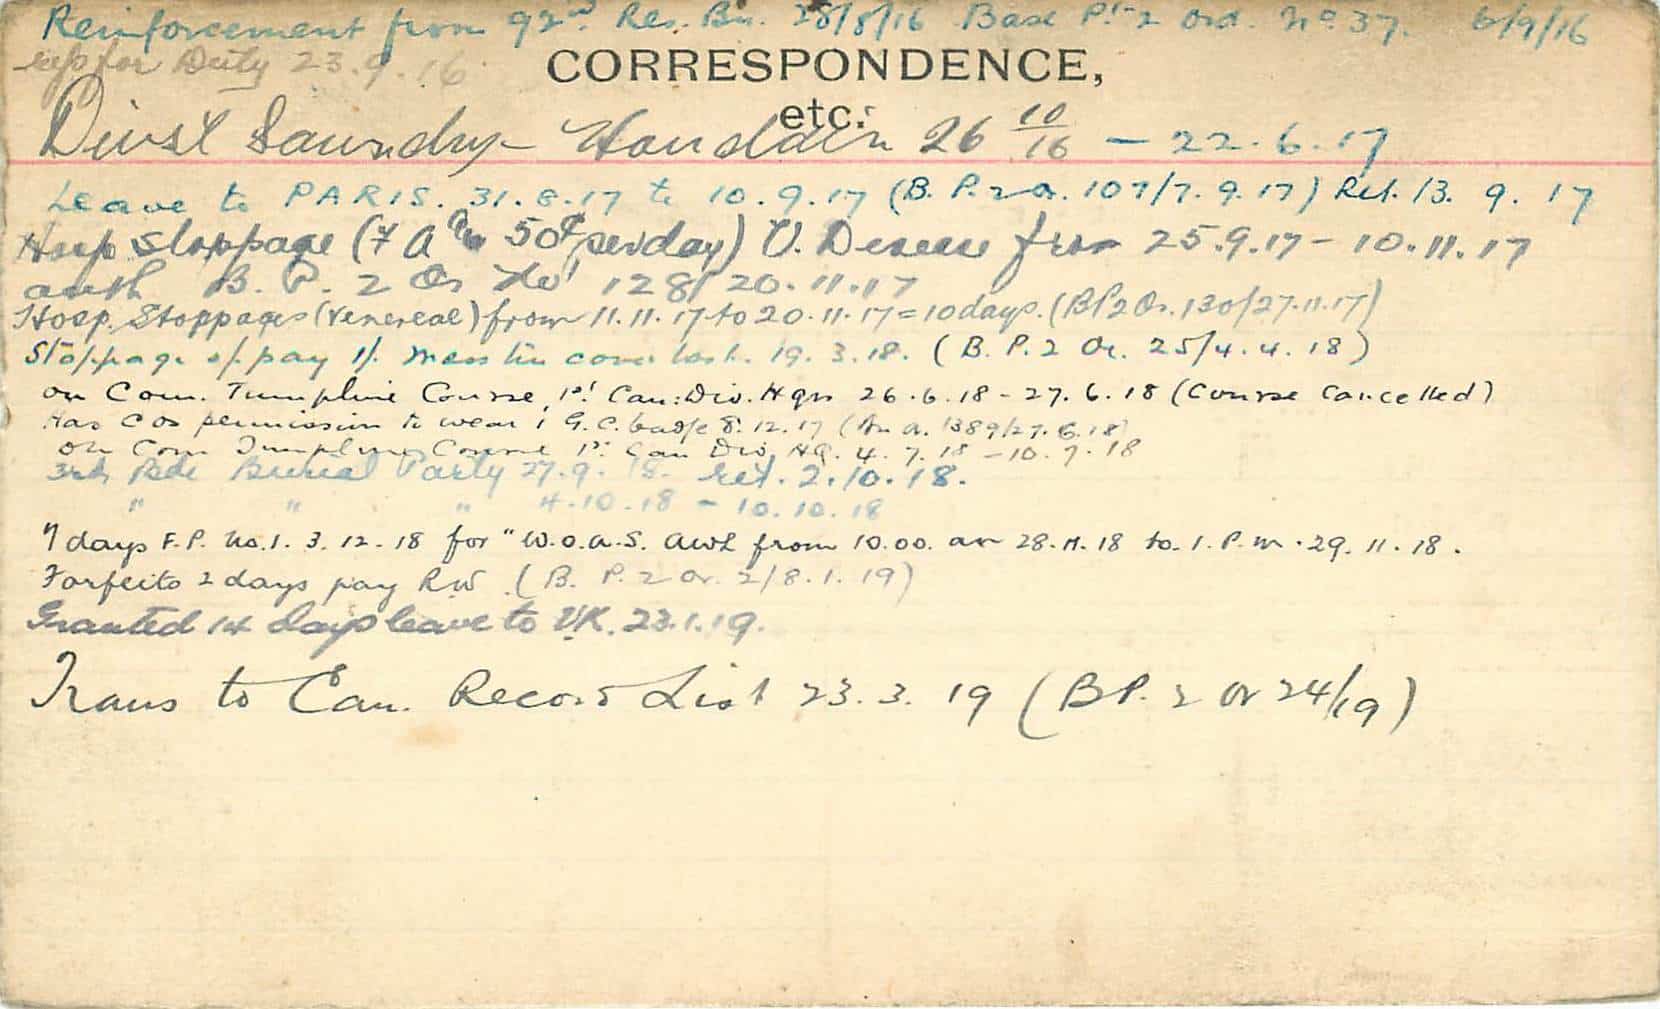 Reinforcement from 92nd Res. Bn. 28/8/16 Base Pt 2 Ord. No. 37. 6/9/16
rep for Duty 23.9.16
CORRESPONDENCE,
etc.
Divsl Laundry - Houdain 26 10/16 — 22.6.17
Leave to PARIS. 31.8.17 to 10.9.17 (B. P. 2 O. 107/7.9.17) Ret. 13. 9. 17
Hosp stoppage (F A 50¢ per day) V. Disease from 25.9.17 - 10.11.17
auth B. P. 2 Or No 128/20.11.17
Hosp. Stoppages (Venereal) from 11.11.17 to 20.11.17 = 10 days. (BP2 Or. 130/27.11.17)
Stoppage of pay 1/. mess tin cover lost. 19. 3. 18. (B. P. 2 Or. 25/4. 4. 18)
on Com. Tumpline Course, 1st Can: Div. Hqrs 26.6.18 - 27.6.18 (Course Cancelled)
Has C Os permission to wear 1 G.C. badge 8.12.17 ( 1389/27.6.18)
On Com Tumpline Course 1st Can Div. HQ. 4.7.18 - 10.7.18
3rd Bde Burial Party 27.9.18. ret. 2.10.18.
" " " 4.10.18 - 10.10.18
7 days F.P. No.1. 3.12.18 for "W.O.A.S. AWL from 10.00. am 28.11.18 to 1. P.m. 29.11.18.
Forfeits 2 days pay RW (B. P. 2 Or. 2/8.1.19)
Granted 14 days leave to UK. 23.1.19.
Trans to Can. Record List 23.3.19 (B P. 2 Or 24/19)